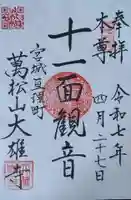 奉拝
本尊
令和七年
四月二十七日
十一面観音
宮城亘理町
萬松山大雄寺